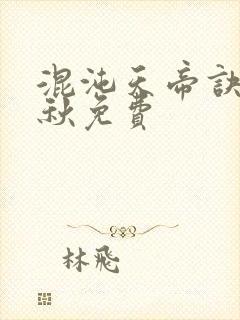 混沌天帝訣
秋免費
林飛